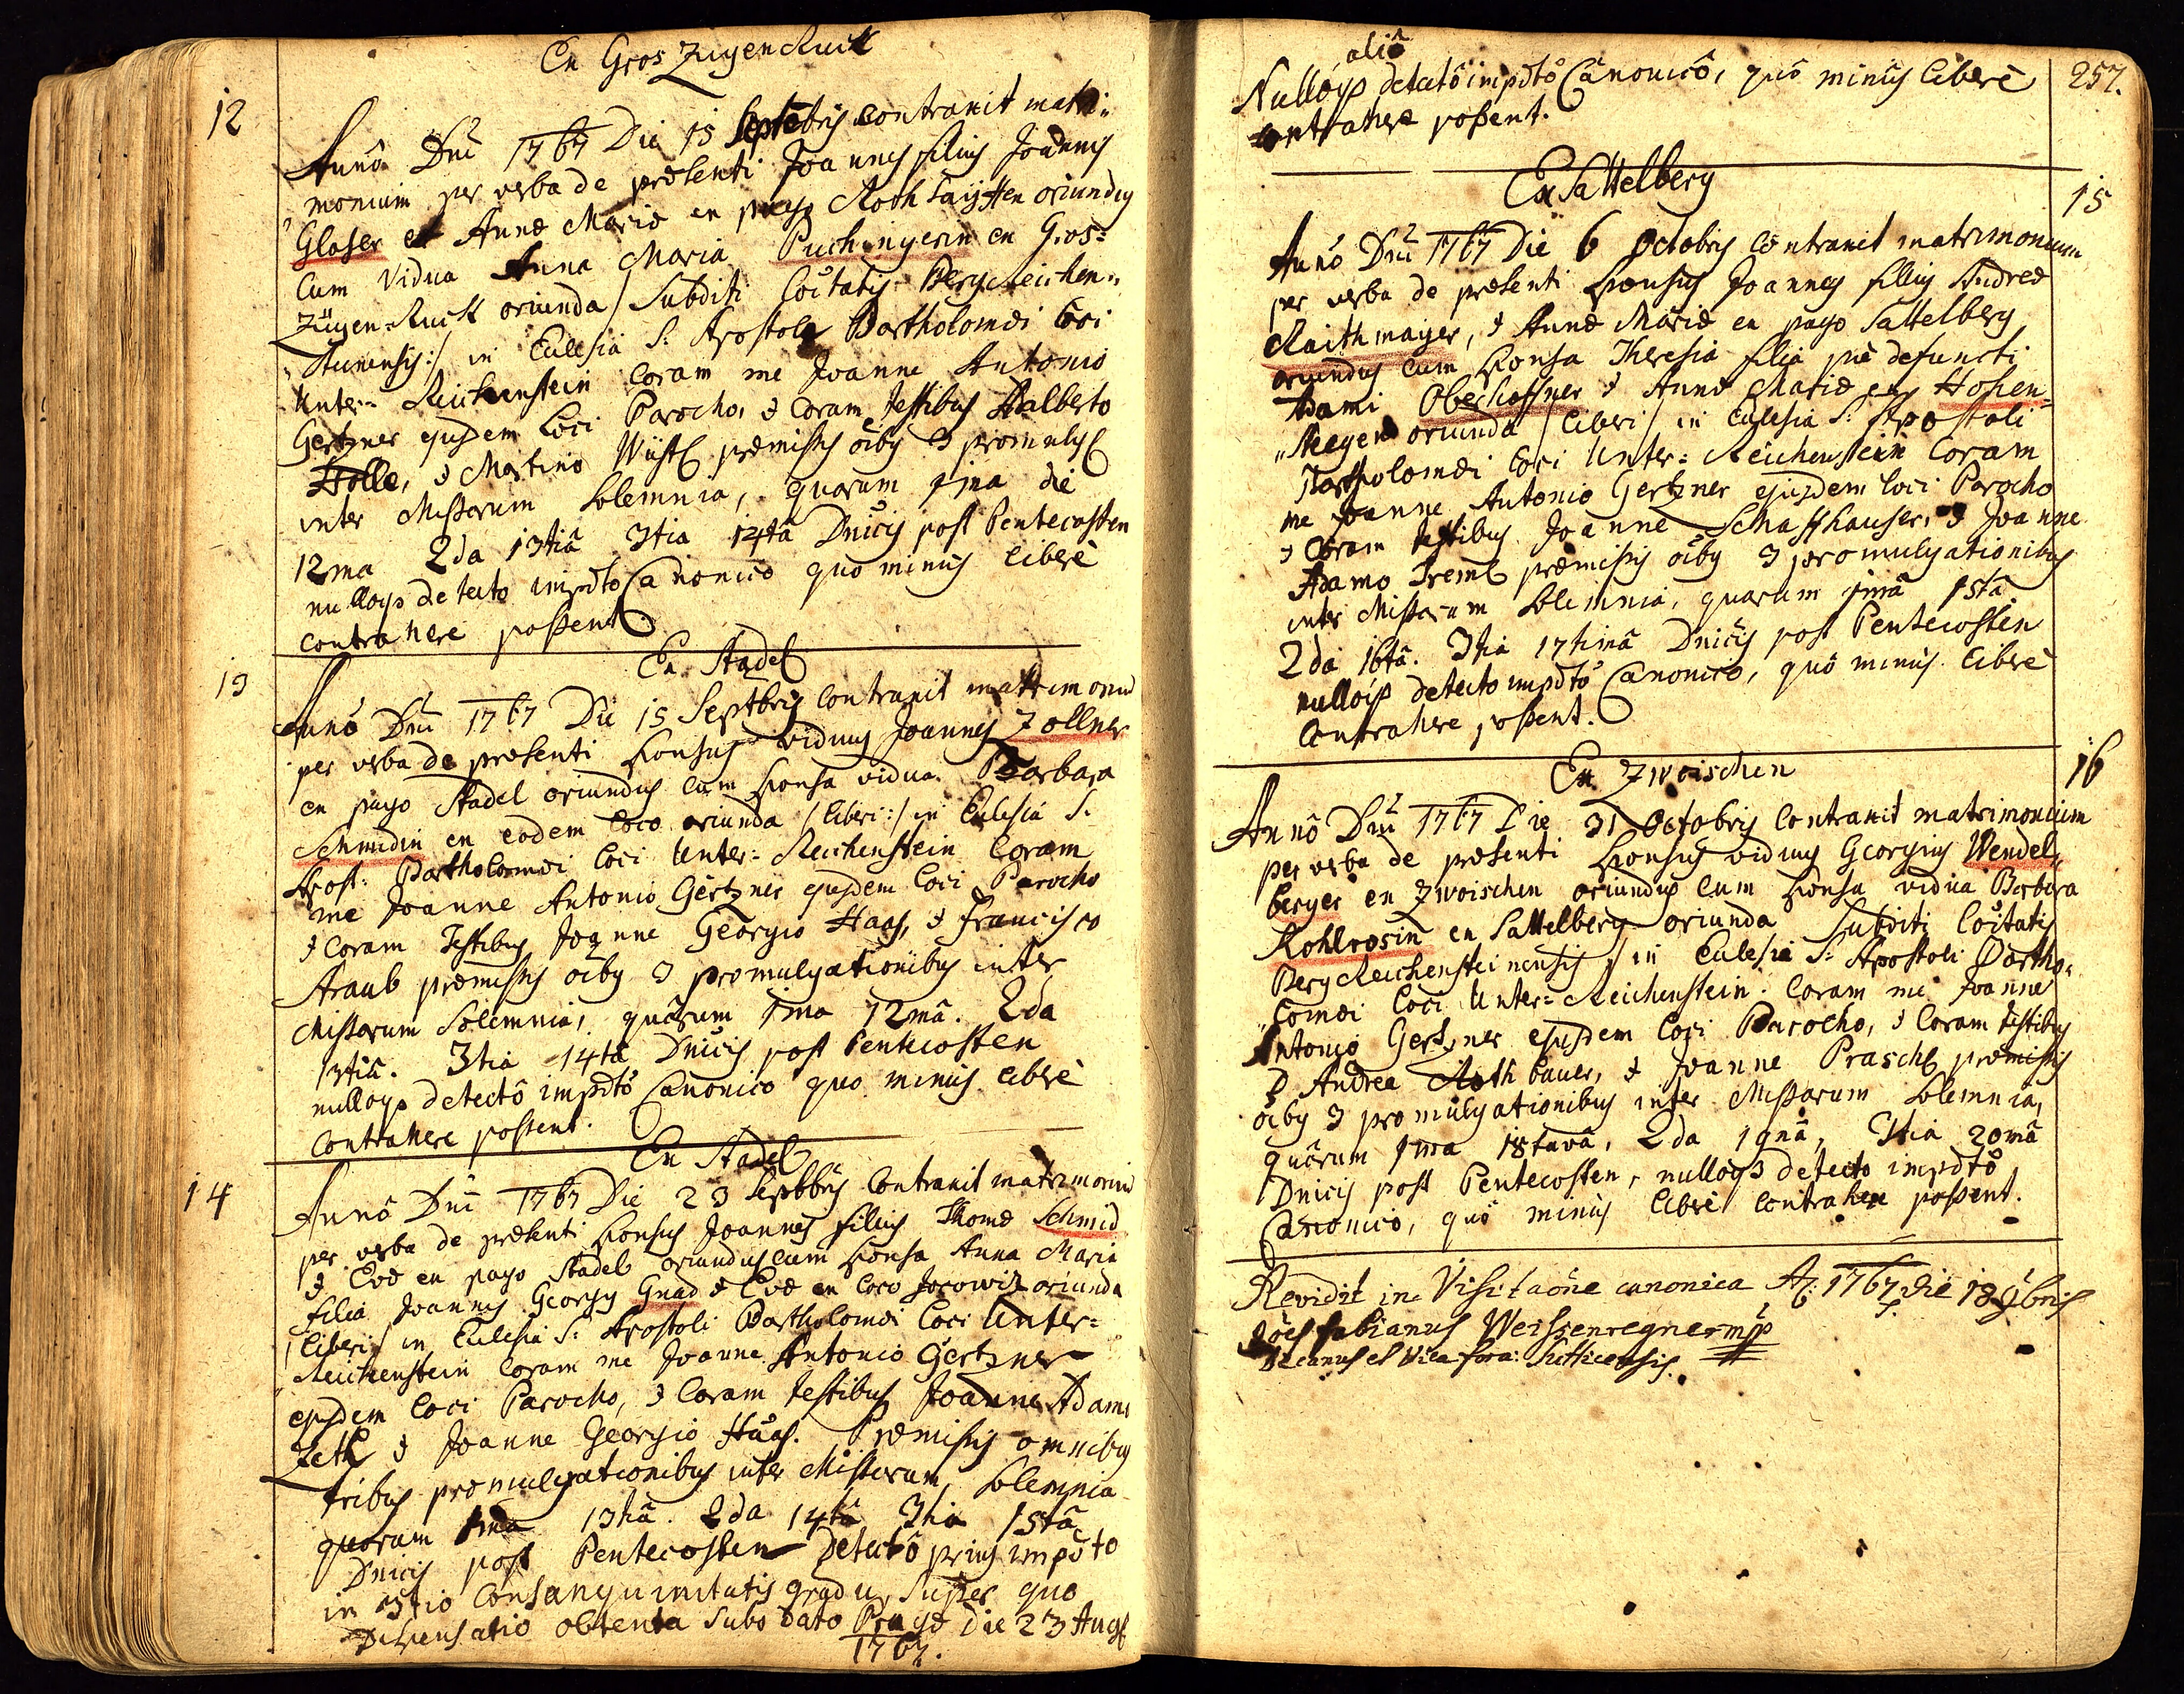 Ex Gros Zugenruck
12
Annô Dnî 1767 Die 15 Septēbris contraxit matri-
monium per verba de præsenti Joannes filius Joannis
Glaser et Annæ Mariæ ex pago Rothsaÿffen oriundus
Cum Vidua Anna Maria Puchingerin ex Gros-
Zugen-Ruck oriunda / Subditi Coītatis Bergreichen-
steinensis:/ in Ecclesia S. Apostoli Bartholomæi loci
Unter-Reichenstein Coram me Joanne Antonio
Gertzner ejusdem Loci Parocho, & Coram Testibus Adalberto
Holle, & Martino Wüstl præmissis oībus 3 promulg
inter Missarum Solemnia, quarum 1ma die
12ma 2da 13tiâ 3tia 14tâ Dnicis post Pentecosten
nulloqs detecto impdto Canonico quo minus liberè
contrahere possent
13
Ex Stadel
Annô Dnî 1767 Die 15 Septbris contraxit matrimoniū
per verba de præsenti sponsus viduus Joannes Zollner
ex pago Stadel oriundus cum sponsa vidua Barbara
Schmidin ex eodem loco oriunda /liberi:/ in Ecclesiâ S.
Apost: Bartholomæi loci Unter-Reichenstein Coram
me Joanne Antonio Gertzner ejusdem loci Parocho
& coram Testibus Joanne Georgio Haas, & Francisco
Straub præmissis oībus 3 promulgationibus inter
Missarum Solemnia, quârum 1ma 12mâ. 2da
13tiâ. 3tia 14tâ Dnicis post Pentecosten
nulloqs detectô impdtô Canonico quo minus liberè
contrahere possent.
Ex Stadel
14
Annô Dnî 1767 Die 23 Septbris contraxit matrimoniū
per verba de præsenti sponsus Joannes filius Thomæ Schmid
& Evæ ex pago Stadel oriundus cum sponsa Anna Maria
filia Joannis Georgij Gnad & Evæ ex loco Jorowitz oriunda
/liberi/ in Ecclesiâ S: Apostoli Bartholomæi loci Unter-
Reichenstein Coram me Joanne Antonio Gertzner
ejusdem loci Parocho, & Coram Testibus Joanne Adamo
Zetl & Joanne Georgio Haas. Præmissis omnibus
tribus promulgationibus inter Missarum Solemnia
quarum 1ma 13tiâ. 2da 14tâ 3tia 15tâ
Dnicis post Pentecosten Detectô prius impdto
in 3tio Consanguinitatis gradu, super quo
Dispensatio obtenta subo dato Pragæ Die 23 Aug
1767.
257.
aliô
Nullôqs detectô impdtô Canonicô, quô minus liberè
contrahere possent.
Ex Sattelberg
15
Annô Dnî 1767 Die 6 Octobris contraxit matrimonium
per verba de præsenti sponsus Joannes filius Andreæ
Raithmayer, & Annæ Mariæ ex pago Sattelberg
oriundus cum sponsa Theresia filia piè defuncti
Adami Oberhoffner & Annæ Mariæ ex Hohen-
steegen oriunda /liberi/ in Ecclesia S: Apostoli
Bartholomæi loci Unter-Reichenstein Coram
me Joanne Antonio Gertzner ejusdem loci Parocho
& Coram testibus Joanne Schaffhauser, & Joanne
Adamo Treml præmissis oībus 3 promulgationibus
inter Missarum Solemnia, quarum 1mâ 15tâ
2da 16tâ. 3tia 17timâ Dnicis post Pentecosten
nullôqs detecto impdtô Canonico, quô minus liberè
Contrahere possent.
Ex Zwoischen
16
Annô Dnî 1767 Die 31 Octobris contraxit matrimonium
per verba de præsenti sponsus viduus Georgius Wendel-
berger ex Zwoischen oriundus cum sponsa vidua Barbara
Kohlrosin ex Sattelberg oriunda Subditi Coītatis
Bergreichensteinensis, in Ecclesia S: Apostoli Bartho-
lomæi loci Unter-Reichenstein. Coram me Joanne
Antonio Gertzner ejusdem loci Parocho, & Coram testibus
D Andrea Rothbauer, & Joanne Praschl præmissis
oībus 3 promulgationibus inter Missarum Solemnia,
quârum 1ma 18tavâ, 2da 19nâ, 3tia 20mâ
Dnicis post Pentecosten, nullôqs detecto impdtô
Canonico, quô minus liberè contrahere possent.
Revidit in Visitaōne canonica Aō: 1767 die 18 9bris
Joēs fabianus Weissenregner mp
Decanus et Vica: fora: Sutticensis.